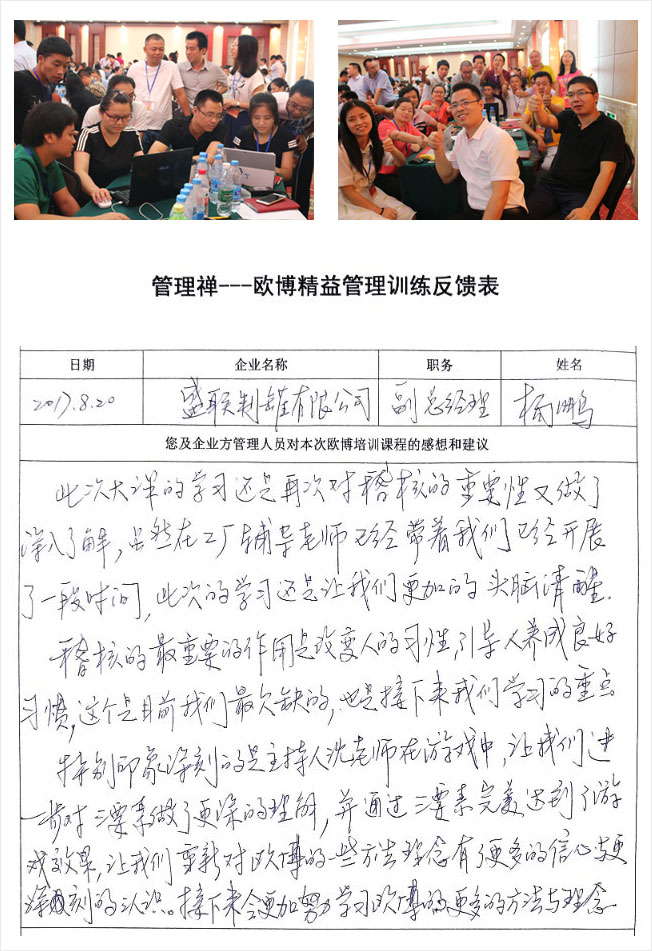 管理禅---欧博精益管理训练反馈表
日期 企业名称 职务 姓名
2017.8.20 盛联制罐有限公司 副总经理 杨鹏
您及企业方管理人员对本次欧博培训课程的感想和建议
此次大课的学习还是再次对稽核的重要性又做了
深入了解,虽然在工厂辅导老师已经带着我们已经开展
了一段时间,此次的学习还是让我们更加的头脑清醒.
稽核的最重要的作用是改变人的习性,引导人养成良好
习惯,这个是目前我们最欠缺的,也是接下来我们学习的重点
特别印象深刻的是主持人沈老师在游戏中,让我们进
一步对三要素做了更深的理解,并通过三要素完美达到了游
戏效果,让我们重新对欧博的一些方法理念有了更多的信心与更
深刻的认识。接下来会更加努力学习欧博的更多的方法与理念